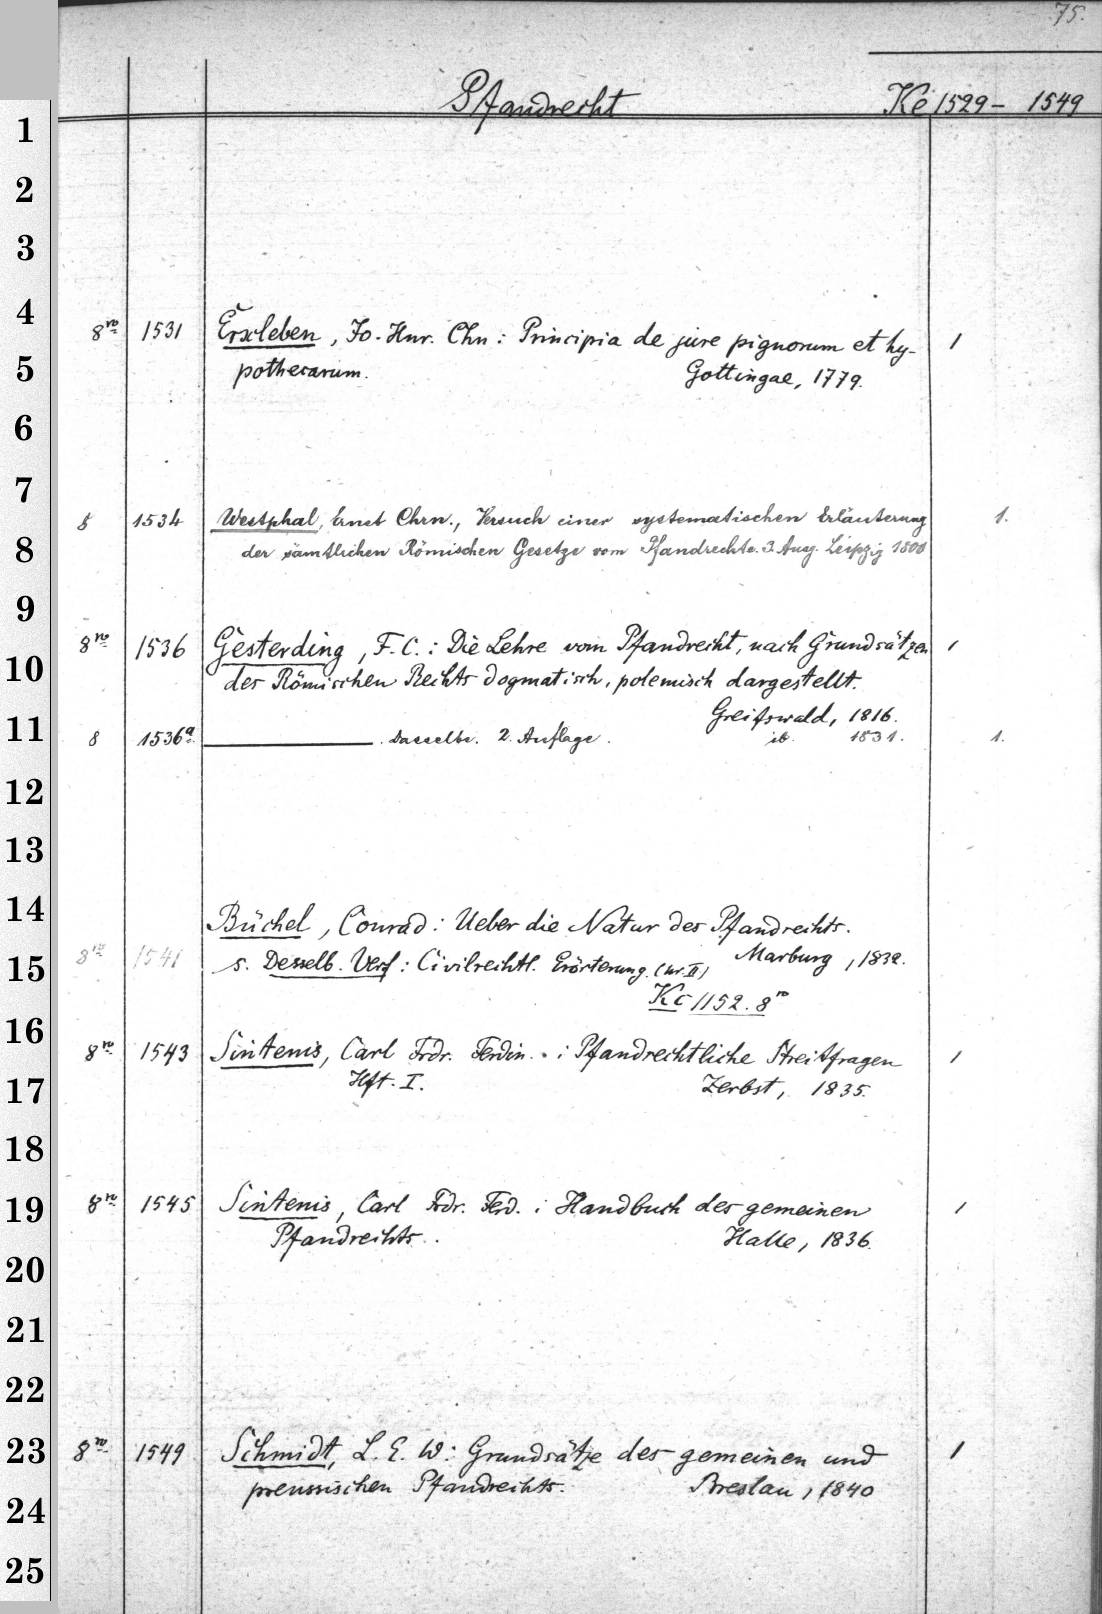 75.
Pfandrecht Ke 1529 - 1549
1
2
3
4
8ro 1531 Erxleben, Jo. Hnr. Chn: Principia de jure pignorum et hy- 1
5
pothecarum. Gottingae, 1779.
6
7
8 1534 Westphal, Ernst Chrn., Versuch einer systematischen Erläuterung 1.
8
der sämtlichen Römischen Gesetze vom Pfandrechte. 3. Ausg. Leipzig 1800
9
8ro 1536 Gesterding, F. C.: Die Lehre vom Pfandrecht, nach Grundsätzen 1
10
des Römischen Rechts dogmatisch, polemisch dargestellt.
Greifswald, 1816.
11
8 1536a. Dasselbe. 2. Auflage. ib. 1831. 1.
12
13
14
Büchel, Conrad: Ueber die Natur des Pfandrechts.
8ro 1541 Marburg, 1832.
15
s. Desselb. Verf: Civilrechtl. Erörterung. (nr. II)
Kc 1152. 8ro
16
8ro 1543 Sintenis, Carl Frdr. Ferdin.: Pfandrechtliche Streitfragen 1
17
Hft. I. Zerbst, 1835.
18
19
8ro 1545 Sintenis, Carl Frdr. Ferd.: Handbuch des gemeinen 1
Pfandrechts. Halle, 1836.
20
21
22
23
8ro 1549 Schmidt, L. E. W: Grundsätze des gemeinen und 1
preussischen Pfandrechts. Breslau, 1840
24
25